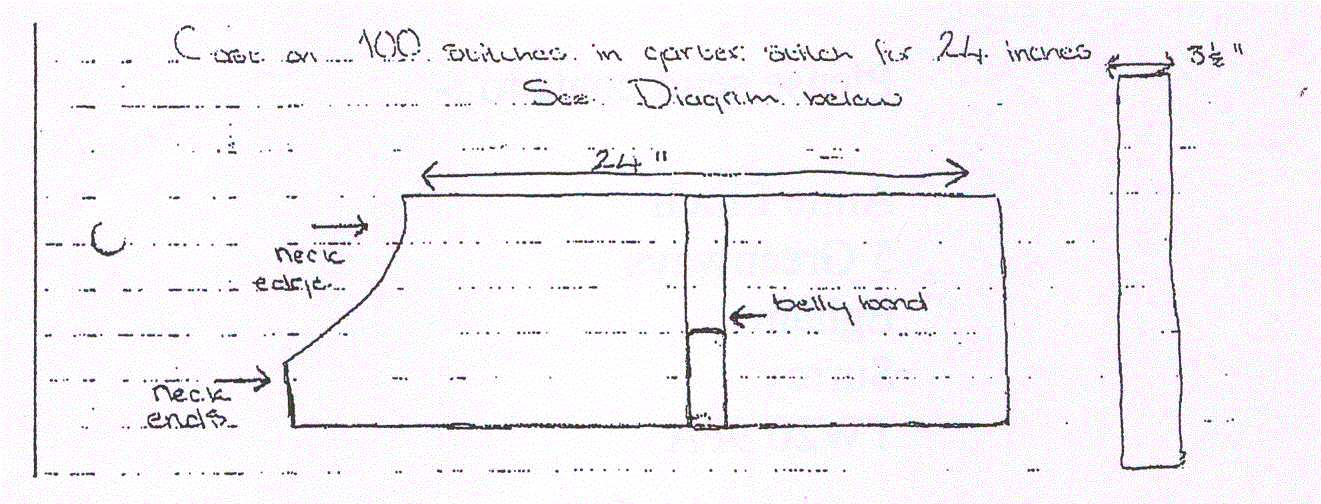 Cast on 100 stitches in garter stitch for 24 inches
3½"
See Diagram below
24"
neck
edge
belly band
neck
ends